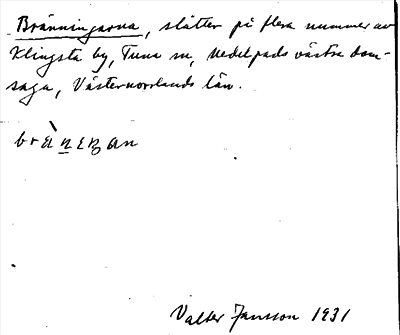 Bränningarna, slåtter på flera nummer av
Klingsta by, Tuna sn, Medelpads västra dom-
saga, Västernorrlands län.
Valter Jansson 1931